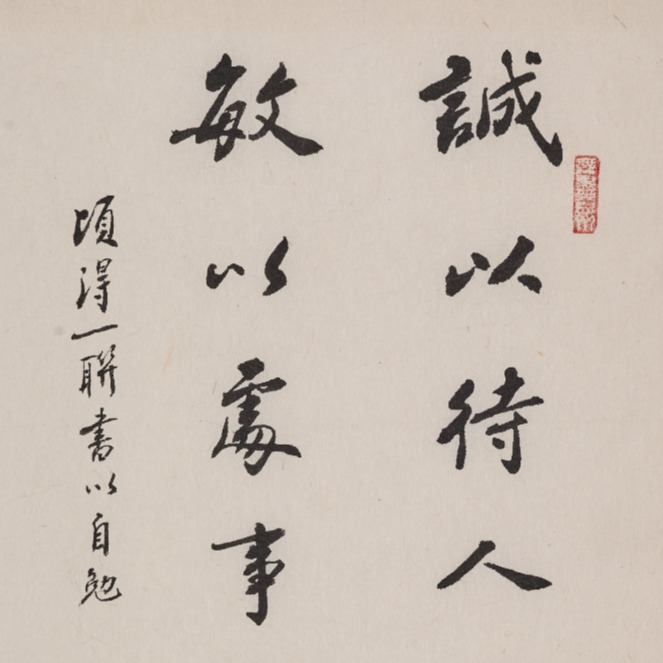 誠以待人
敏以處事
頃得一聯書以自勉